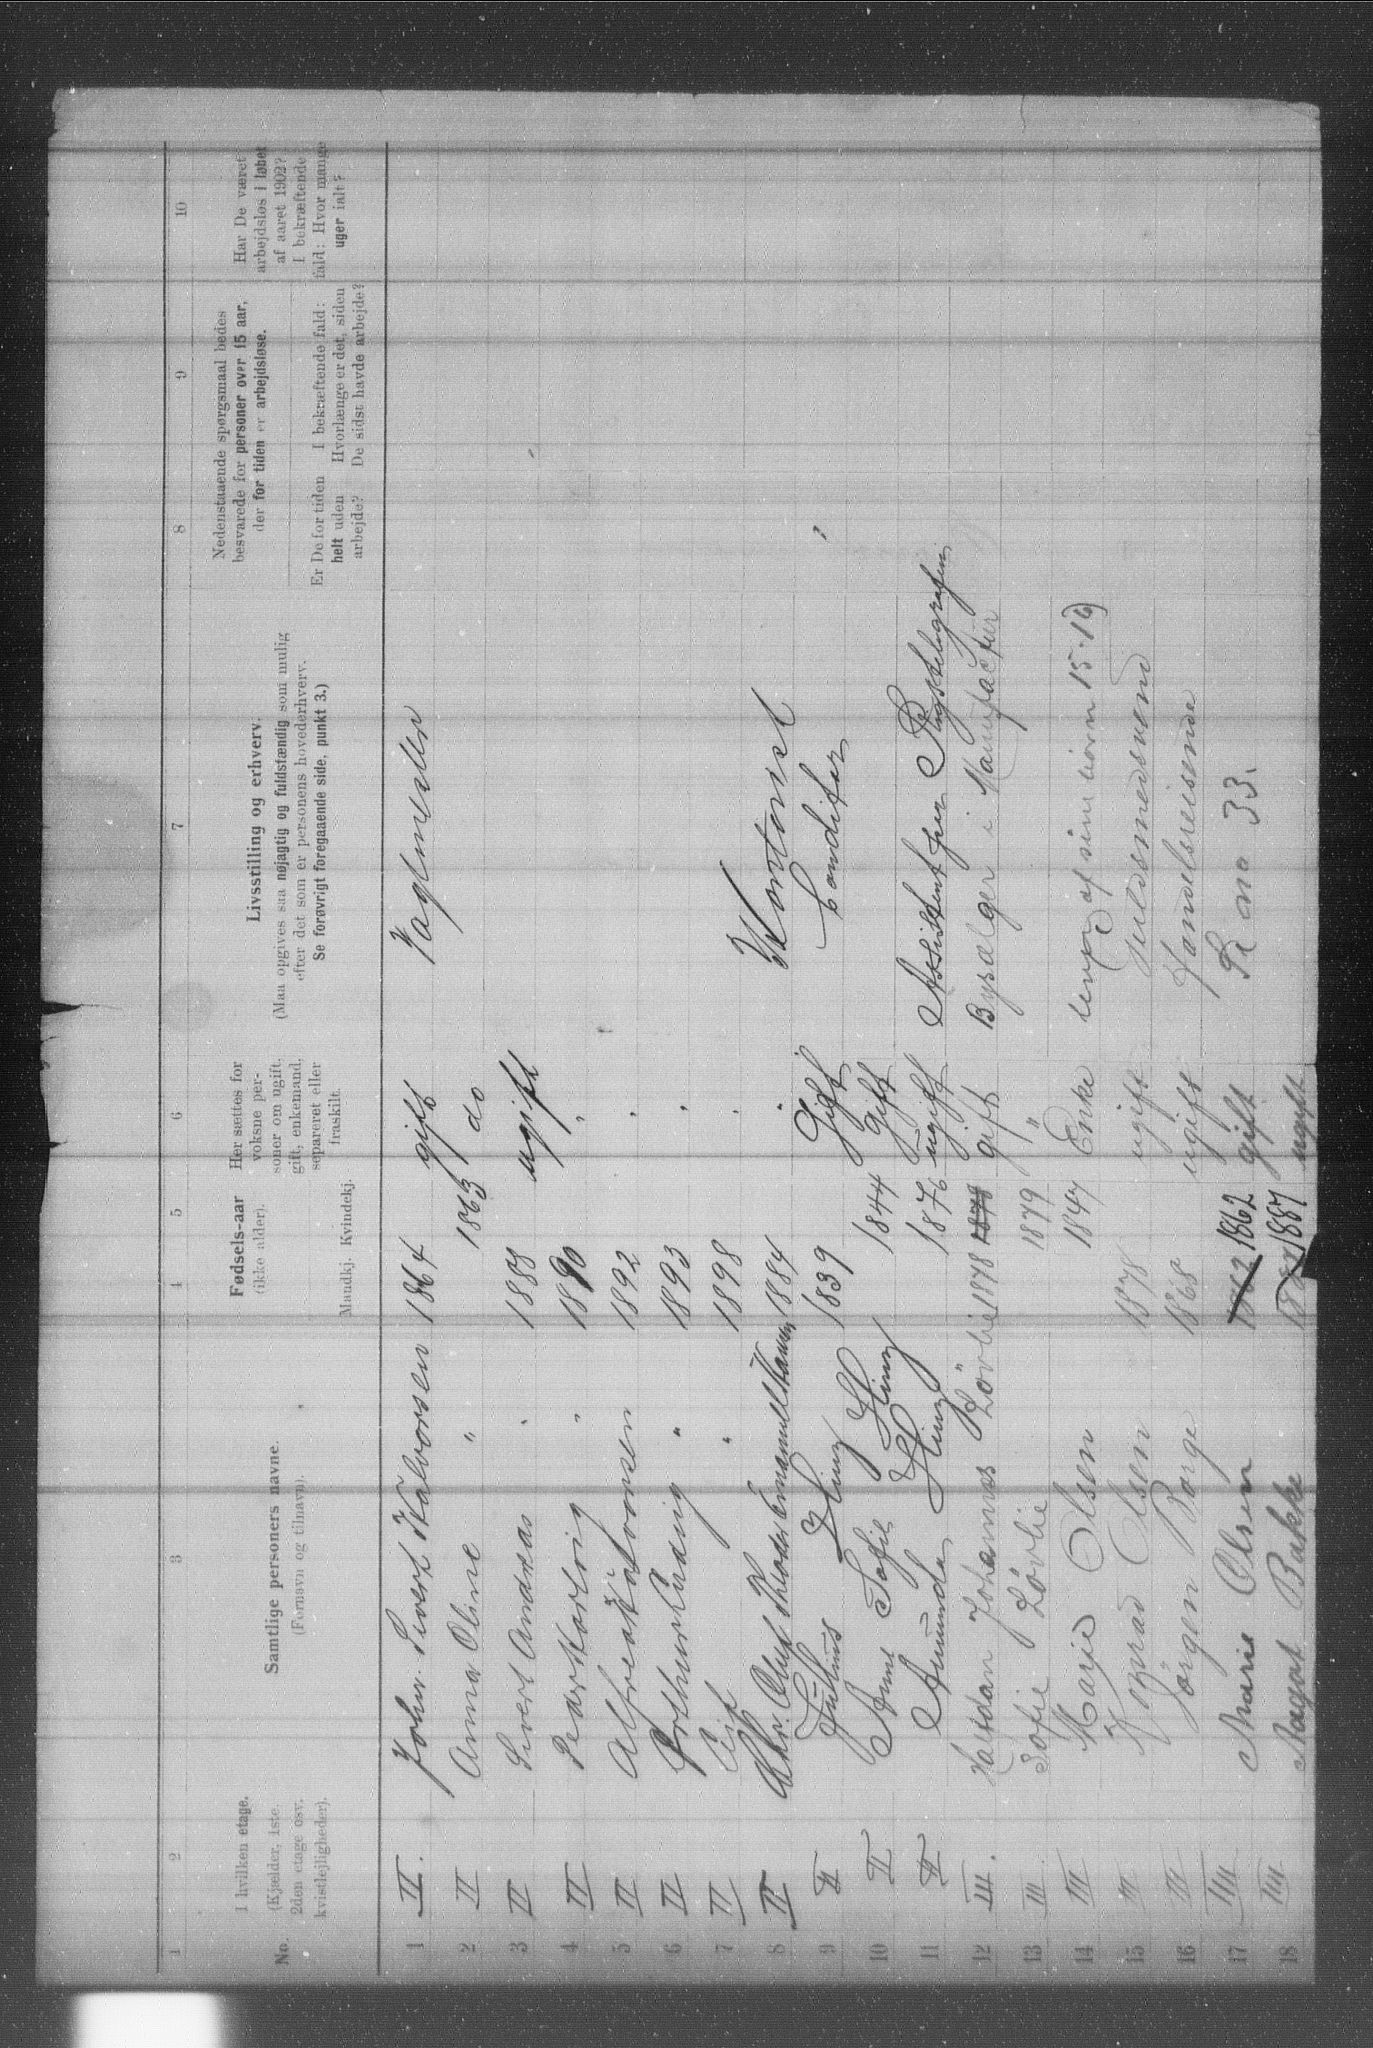 1 2 3 4 5 6 7 8 9 10
No. I hvilken etage. (Kjælder, 1ste, 2den etage osv. kvistlejligheder).
Samtlige personers navne. (Fornavn og tilnavn).
Fødsels-aar (ikke alder). Mandkj. Kvindekj.
Her sættes for voksne personer om ugift, gift, enkemand, separeret eller fraskilt.
Livsstilling og erhverv. (Maa opgives saa nøjagtig og fuldstændig som mulig efter det som er personens hovederhverv. Se forøvrigt foregaaende side, punkt 3.)
Nedenstaaende spørgsmaal bedes besvarede for personer over 15 aar, der for tiden er arbejdsløse.
Er De for tiden helt uden arbejde?
I bekræftende fald: Hvorlænge er det, siden De sidst havde arbejde?
Har De været arbejdsløs i løbet af aaret 1902? I bekræftende fald: Hvor mange uger ialt?
1 II. Johan Sivert Halvorsen 1864 gift Vaglmester
2 II Anna Oline " 1863 do
3 II Sivert Andreas " 1888 ugift
4 II Peder " 1890 "
5 II Alfred Halvorsen 1892 "
6 II Arthur Ludvig " 1893 "
7 II " 1898 "
8 II Chr. Oluf Emanuel Hansen 1884 " Kontorist
9 II Julius Hinz 1839 Gift Conditor
10 II Anne Sofie Hinz 1844 Gift
11 II Amunda Hinz 1876 ugift Assistent
12 III. Halfdan Johannes Løvlie 1878 1878 gift Bysælger i Manufactur
13 III. Sofie Løvlie 1879 "
14 III Marie Olsen 1847 Enke af sine børn 15-16)
15 III Konrad Olsen 1878 ugift Guldsmedsvend
16 III Jørgen Borge 1868 ugift Handelsreisende
17 IIII Marie Olsen 1862 1862 gift 33.
18 IIII Aagot Bakke 1887 ugift